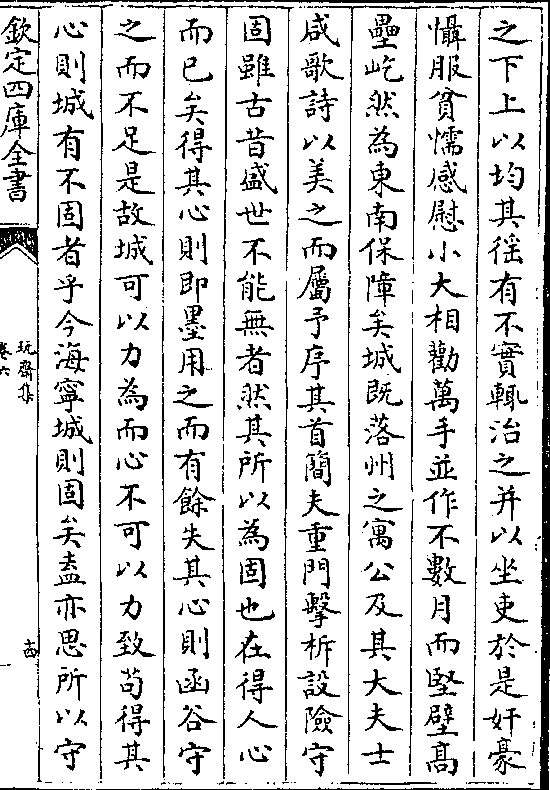 之下上以均其徭有不實輒治之并以坐吏於是奸豪
懾服貧懦感慰小大相勸萬手並作不數月而堅壁髙
壘屹然為東南保障矣城既落州之寓公及其大夫士
咸歌詩以美之而屬予序其首簡夫重門擊柝設險守
固雖古昔盛世不能無者然其所以為固也在得人心
而已矣得其心則即墨用之而有餘失其心則函谷守
之而不足是故城可以力為而心不可以力致苟得其
心則城有不固者乎今海寧城則固矣盍亦思所以守
欽定四庫全書
玩齋集
卷六
十四